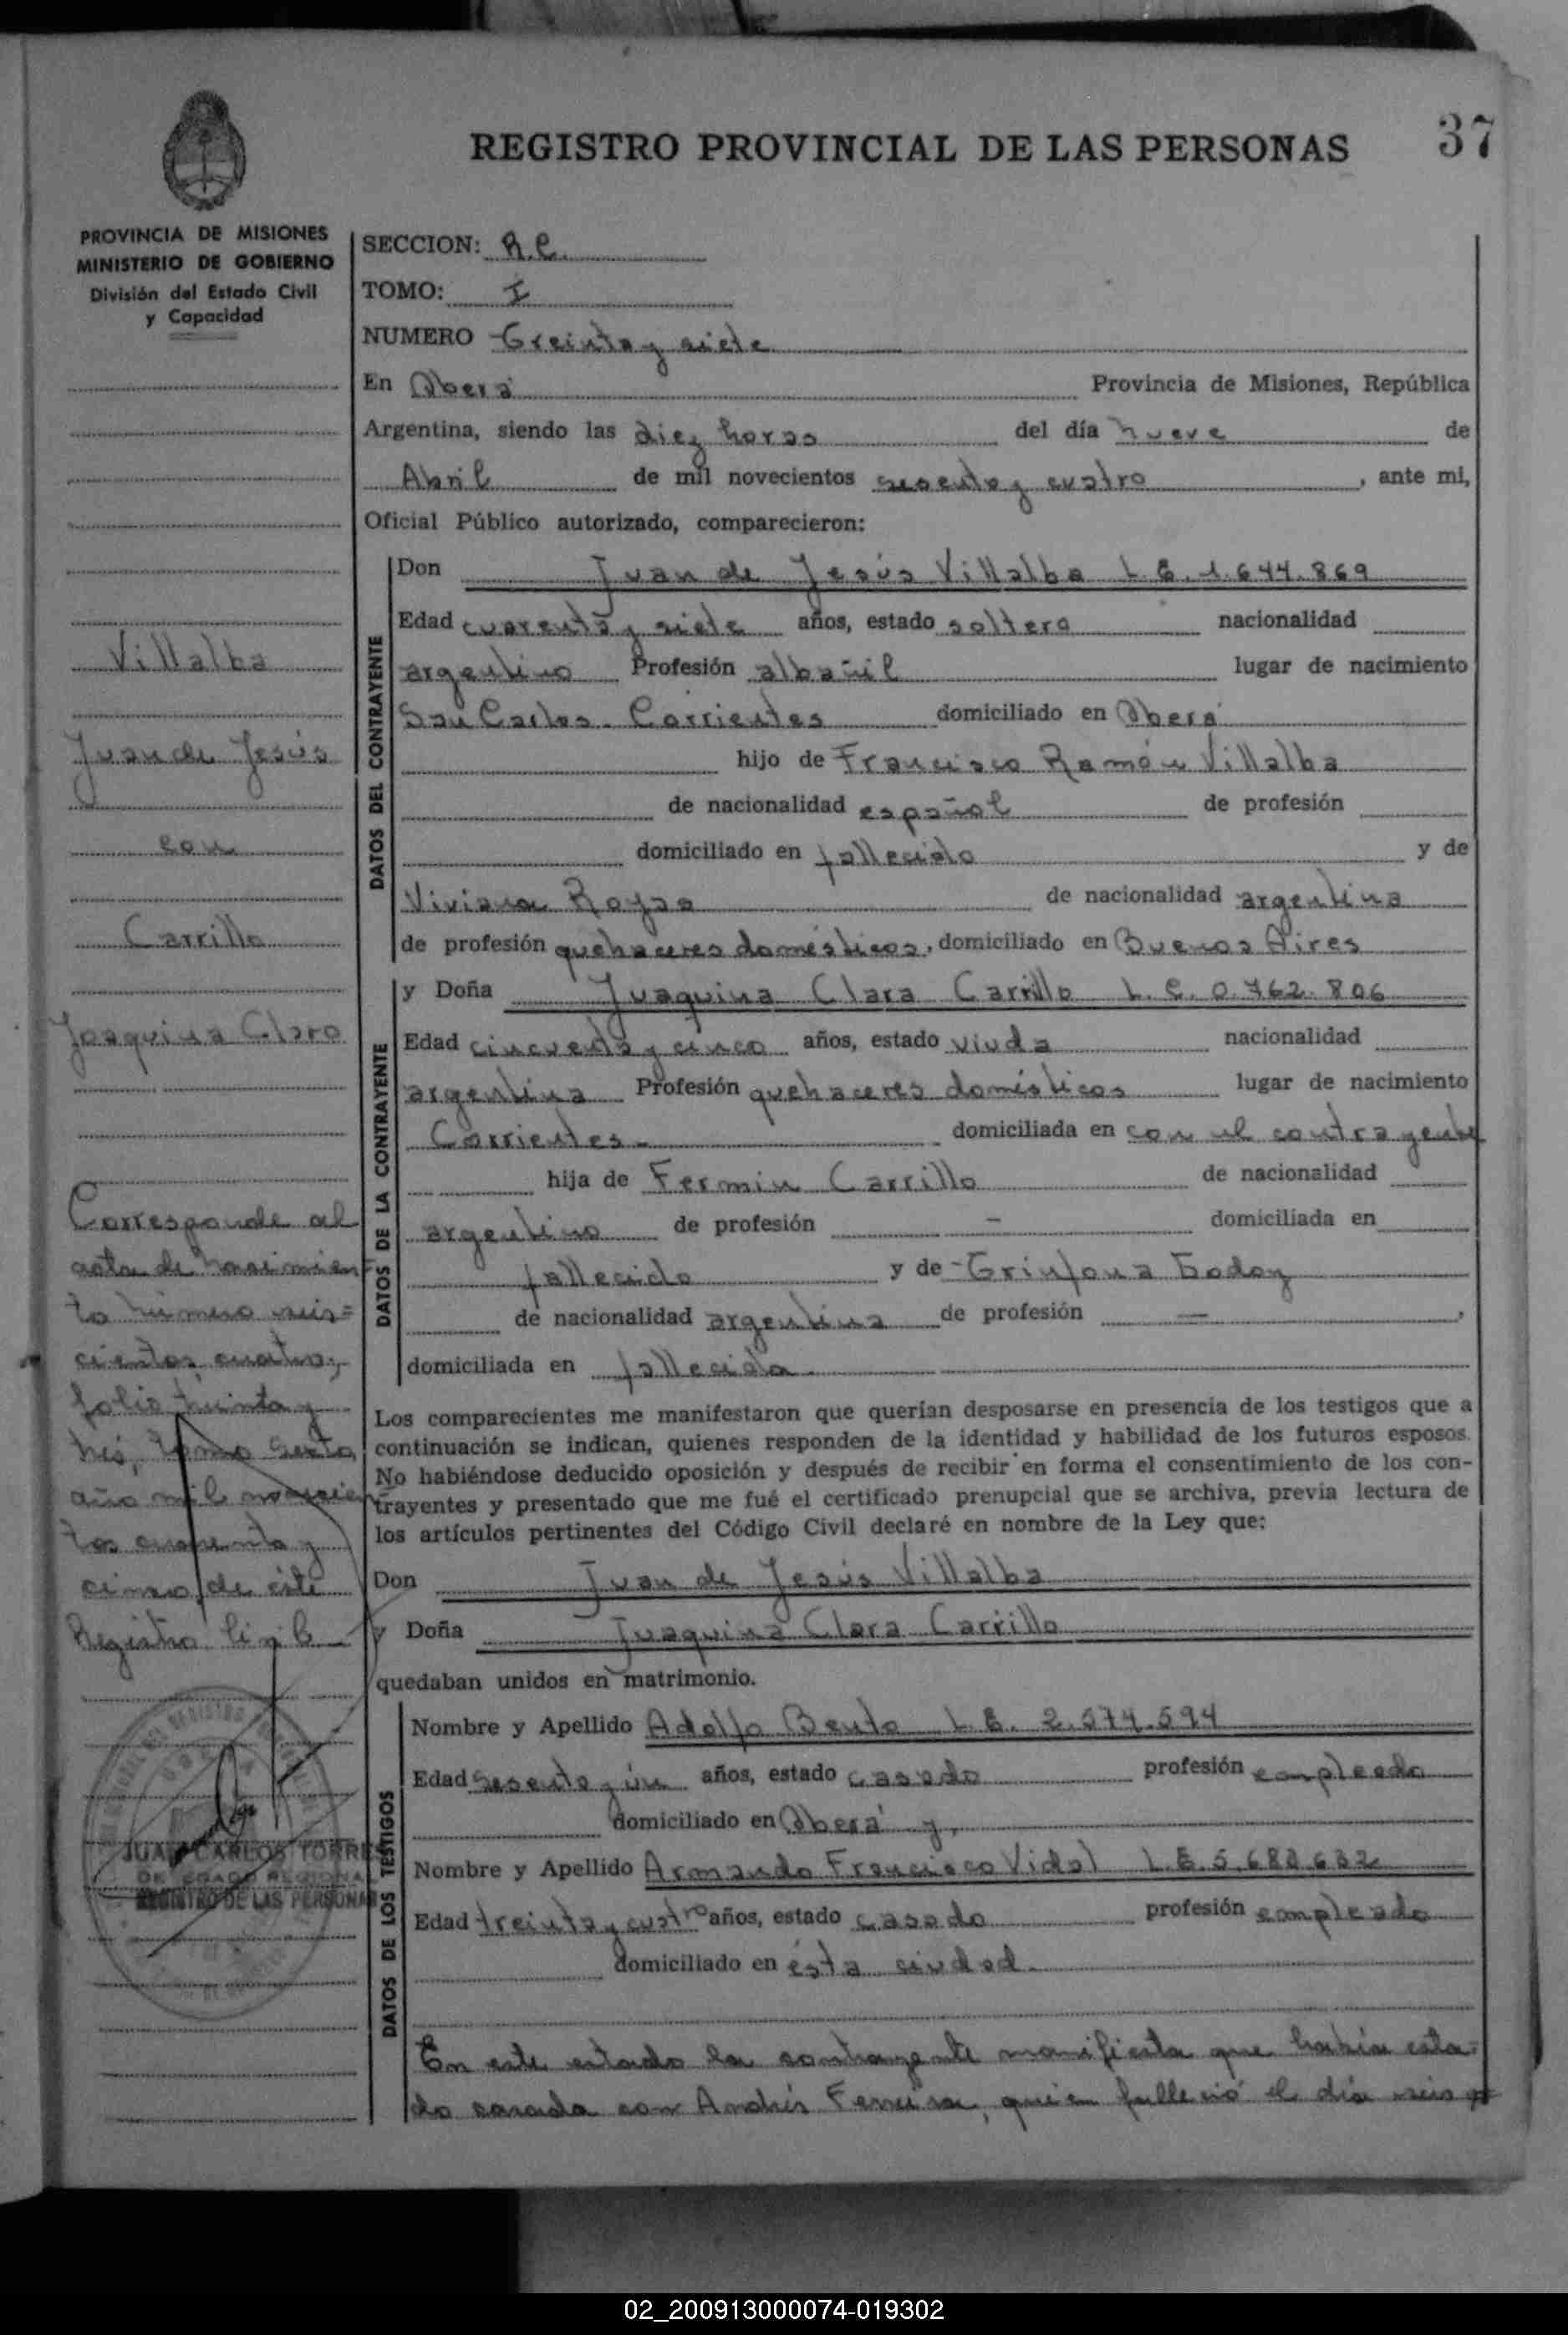 REGISTRO PROVINCIAL DE LAS PERSONAS
37
PROVINCIA DE MISIONES
MINISTERIO DE GOBIERNO
División del Estado Civil
y Capacidad
Villalba
Juan de Jesús
con
Carrillo
Joaquina Clara
Corresponde al
acta de nacimien
to número seis=
cientos cuatro,
folio treinta y
tres, tomo sexto,
año mil novecien
tos cuarenta y
cinco, de éste
Registro Civil
JUAN CARLOS TORRES
REGISTRO DE LAS PERSONAS
SECCION: R.C.
TOMO: I
NUMERO Treinta y siete
En Oberá Provincia de Misiones, República
Argentina, siendo las diez horas del día nueve de
Abril de mil novecientos sesenta y cuatro, ante mi,
Oficial Público autorizado, comparecieron:
DATOS DEL CONTRAYENTE
Don Juan de Jesús Villalba L.E. 1.644.869
Edad cuarenta y siete años, estado soltero nacionalidad
argentino Profesión albañil lugar de nacimiento
San Carlos - Corrientes domiciliado en Oberá
hijo de Francisco Ramón Villalba
de nacionalidad español de profesión
domiciliado en fallecido y de
Viviana Rojas de nacionalidad argentina
de profesión quehaceres domésticos, domiciliado en Buenos Aires
DATOS DE LA CONTRAYENTE
y Doña Juaquina Clara Carrillo L.C. 0.762.806
Edad cincuenta y cinco años, estado viuda nacionalidad
argentina Profesión quehaceres domésticos lugar de nacimiento
Corrientes - domiciliada en con el contrayente
hija de Fermin Carrillo de nacionalidad
argentino de profesión — domiciliada en
fallecido y de Trinfona Godoy
de nacionalidad argentina de profesión —,
domiciliada en fallecida
Los comparecientes me manifestaron que querían desposarse en presencia de los testigos que a
continuación se indican, quienes responden de la identidad y habilidad de los futuros esposos.
No habiéndose deducido oposición y después de recibir en forma el consentimiento de los con-
trayentes y presentado que me fué el certificado prenupcial que se archiva, previa lectura de
los artículos pertinentes del Código Civil declaré en nombre de la Ley que:
Don Juan de Jesús Villalba
y Doña Juaquina Clara Carrillo
quedaban unidos en matrimonio.
DATOS DE LOS TESTIGOS
Nombre y Apellido Adolfo Bento L.E. 2.574.594
Edad sesenta y ún años, estado casado profesión empleado
domiciliado en Oberá y,
Nombre y Apellido Armando Francisco Vidal L.E. 5.683.632
Edad treinta y cuatro años, estado casado profesión empleado
domiciliado en ésta ciudad.
En este estado la contrayente manifiesta que había esta=
do casada con Andrés Ferreira, quien falleció el día seis
02_200913000074-019302